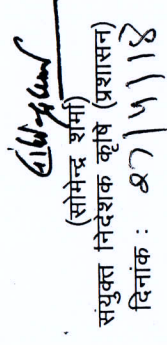 (सोमेन्द्र शर्मा)
संयुक्त निदेशक कृषि (प्रशासन)
दिनांक : 27/5/18